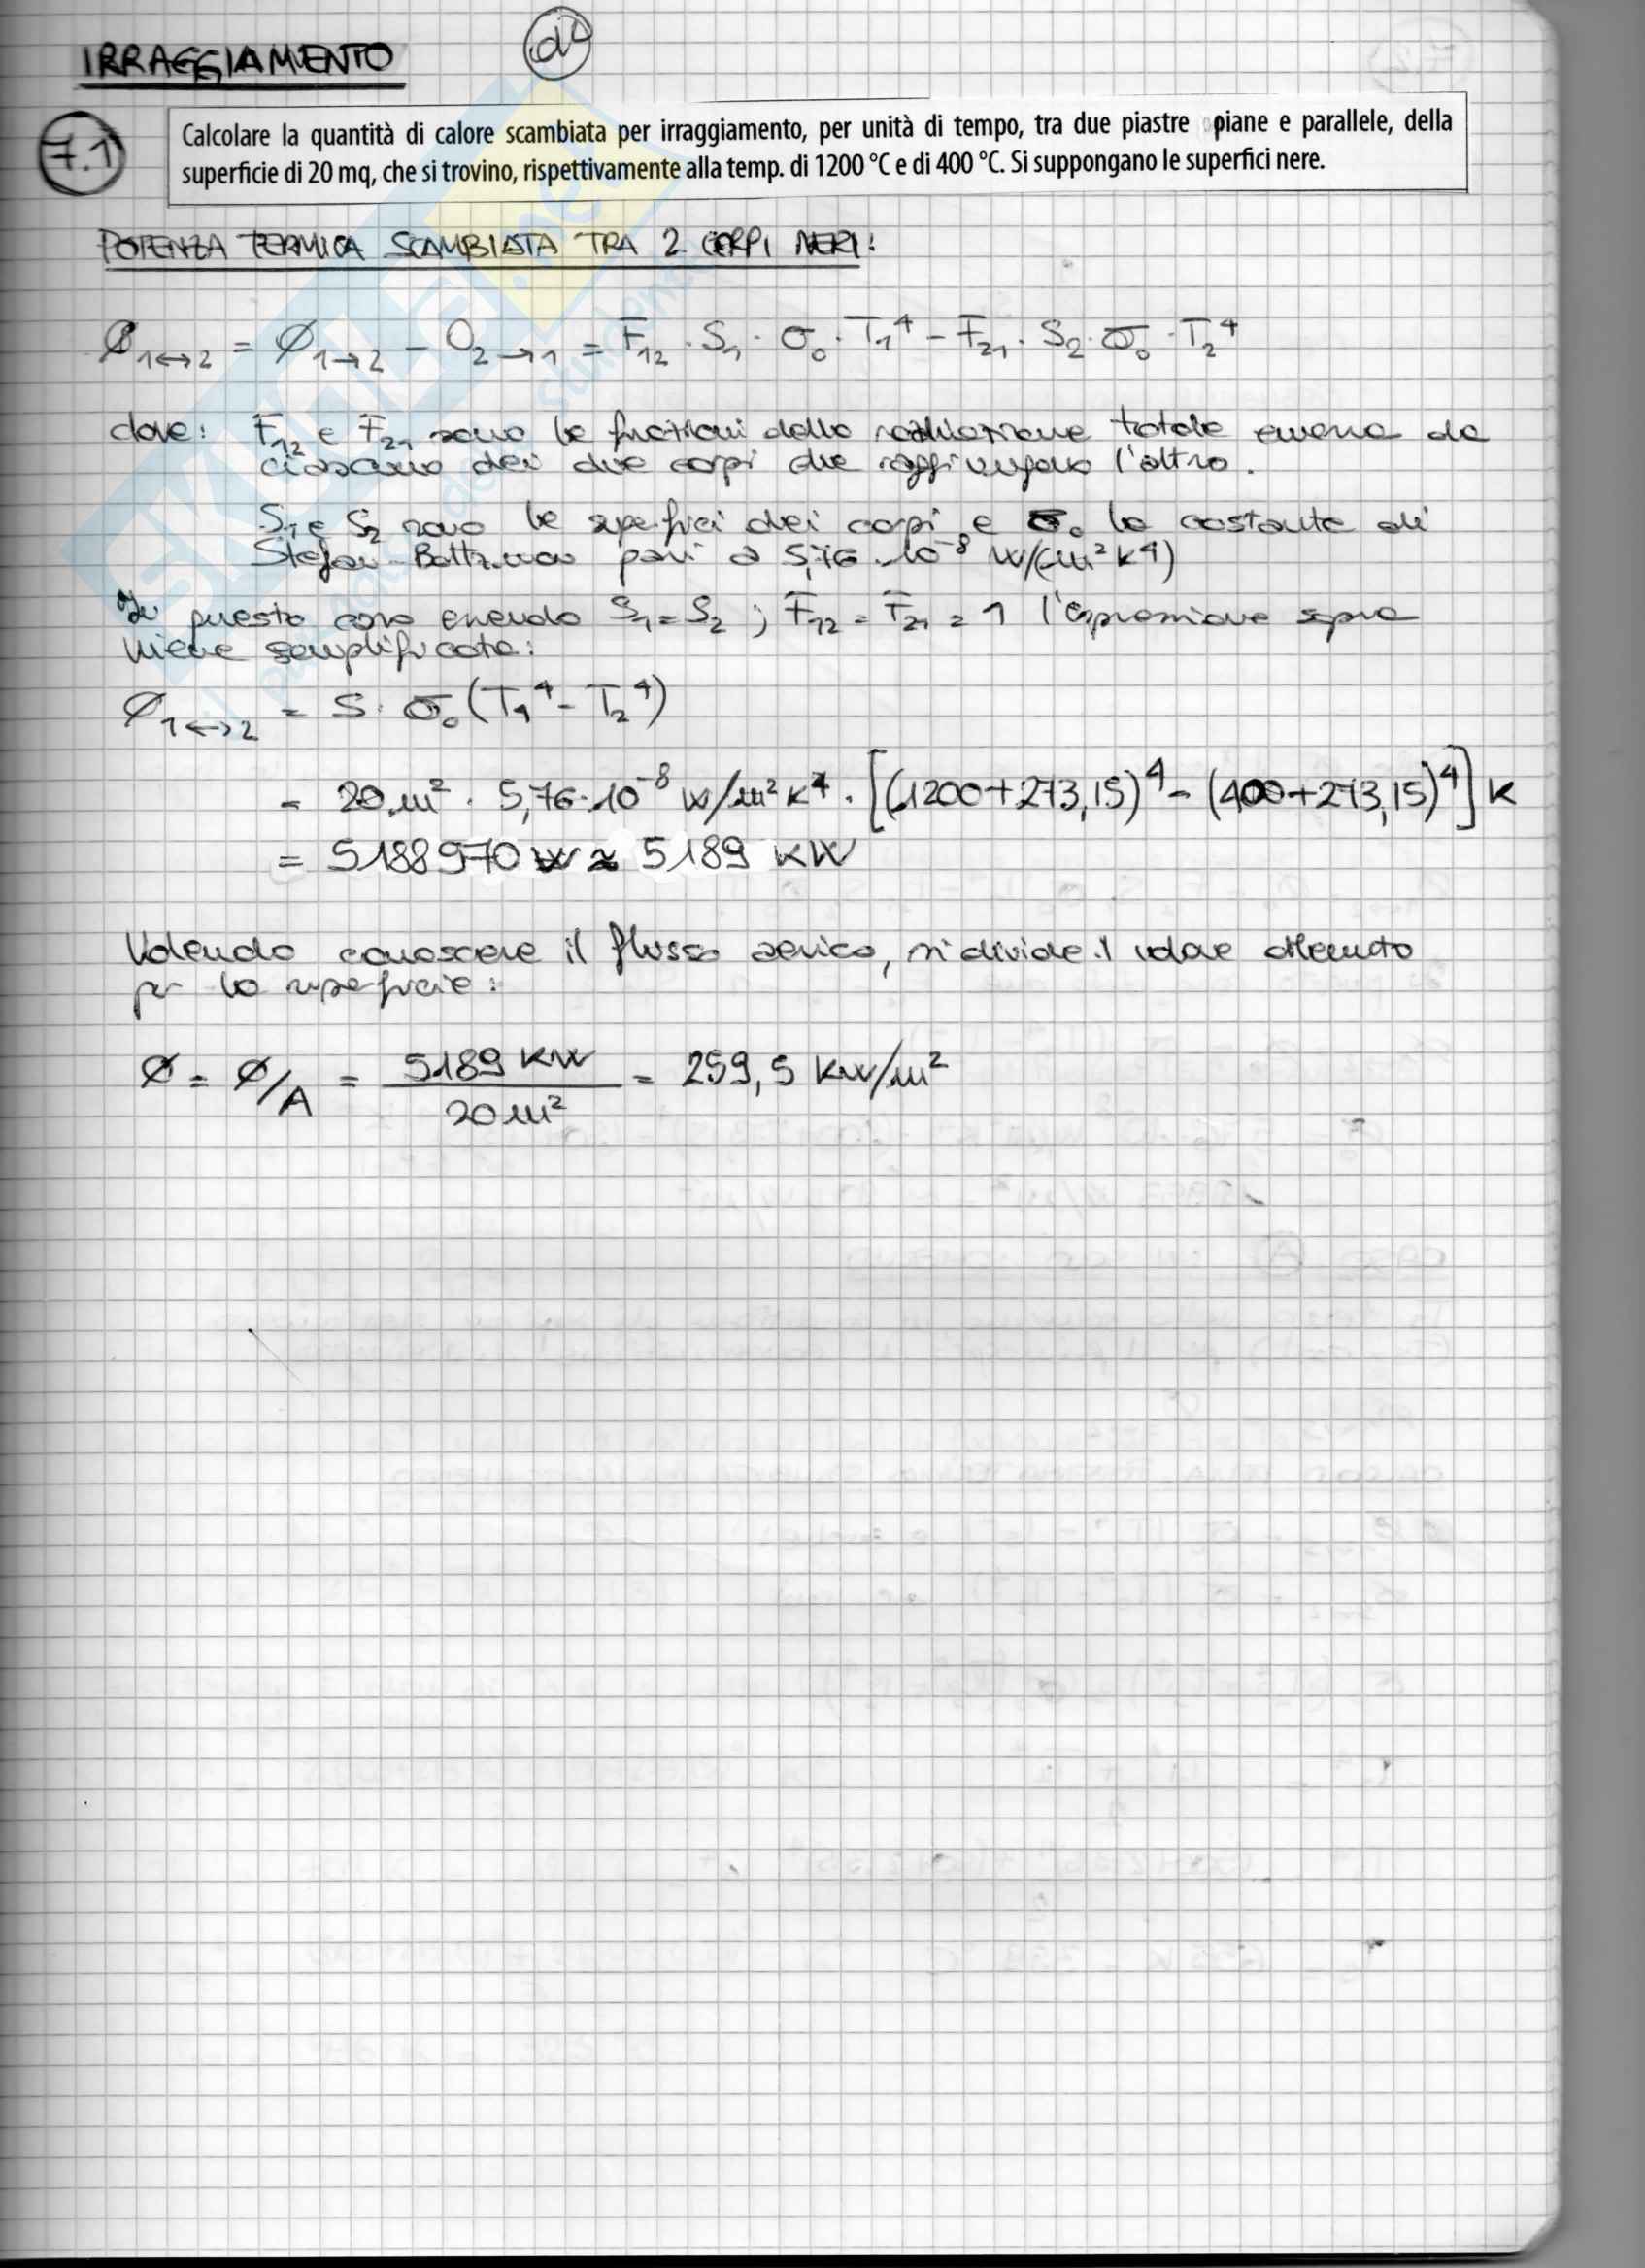 IRRAGGIAMENTO
7.1
Calcolare la quantità di calore scambiata per irraggiamento, per unità di tempo, tra due piastre piane e parallele, della
superficie di 20 mq, che si trovino, rispettivamente alla temp. di 1200 °C e di 400 °C. Si suppongano le superfici nere.
POTENZA TERMICA SCAMBIATA TRA 2 CORPI NERI:
Φ1↔2 = Φ1→2 - Q2→1 = F12 · S1 · σ0 · T1⁴ - F21 · S2 · σ0 · T2⁴
dove: F12 e F21 sono le frazioni della radiazione totale emessa da
ciascuno dei due corpi che raggiungono l'altro.
S1 e S2 sono le superfici dei corpi e σ0 la costante di
Stefan-Boltzman pari a 5,76 · 10⁻⁸ W/(m² K⁴)
In questo caso essendo S1 = S2 ; F12 = F21 = 1 l'espressione sopra
viene semplificata:
Φ1↔2 = S · σ0 (T1⁴ - T2⁴)
= 20 m² · 5,76 · 10⁻⁸ W/m² K⁴ · [(1200+273,15)⁴ - (400+273,15)⁴] K
= 5188970 W ≈ 5189 KW
Volendo conoscere il flusso aerico, si divide il valore ottenuto
per la superficie:
Φ = Φ/A = 5189 KW / 20 m² = 259,5 KW/m²